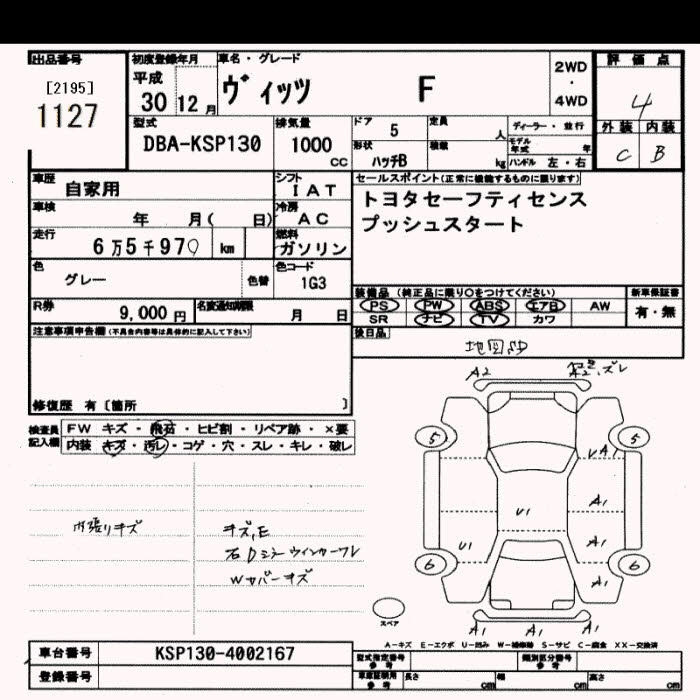 出品番号 初度登録年月 車名・グレード 評価点
[2195] 平成 ヴィッツ F 2WD
1127 30 12月 ・ 4
4WD
型式 排気量 ドア 5 定員 人 ディーラー・並行 外装 内装
DBA-KSP130 1000 CC 形状 ハッチB 積載 kg モデル年式 年 C B
ハンドル 左・右
車歴 自家用 シフト IAT セールスポイント(正常に機能するものに限ります)
車検 年 月( 日) 冷房 AC トヨタセーフティセンス
走行 6万5千970 km 燃料 ガソリン プッシュスタート
色 グレー 色替 色コード 1G3
装備品(純正品に限り○をつけてください) 新車保証書
R券 9,000円 名変通知期限 月 日 PS PW ABS エアB AW 有・無
SR ナビ TV カワ
注意事項申告欄(不具合内容等は具体的に記入して下さい) 後日品
地図SD
修復歴 有〔箇所 〕
検査員記入欄 FW キズ・飛石・ヒビ割・リペア跡・×要
内装 キズ・汚レ・コゲ・穴・スレ・キレ・破レ
A2 A2 ズレ
5 5
A1
A1
U1
U1 A1
6 6
A1
A1 A1 A1
内張りキズ キズ,E
右Dミラーウインカーワレ
Wカバーキズ
スペア
A-キズ E-エクボ U-凹み W-補修跡 S-サビ C-腐食 XX-交換済
車台番号 KSP130-4002167 型式指定番号 参考 類別区分番号 参考
登録番号 車庫証明用 参考 長さ cm 幅 cm 高さ cm